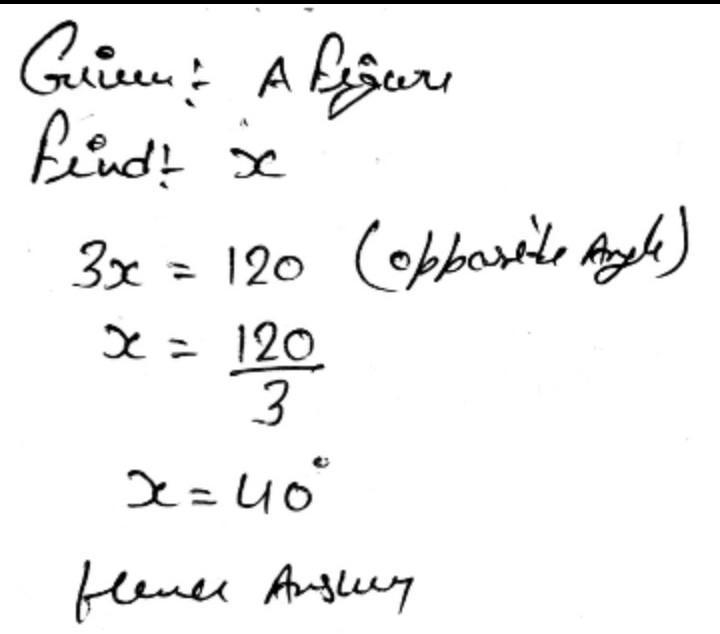 Given:- A figure
Find:- x
3x = 120 (opposite Angle)
x = 120/3
x = 40°
Hence Answer